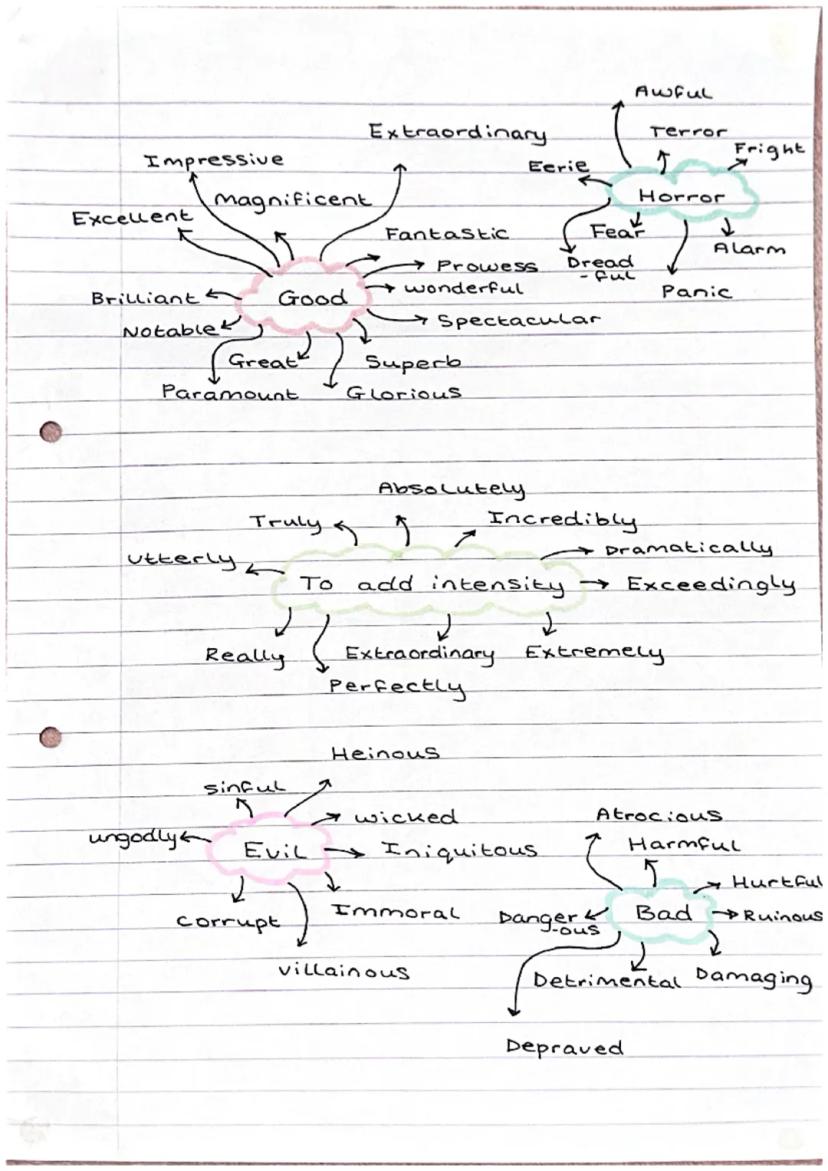 Extraordinary
Impressive
Magnificent
Excellent
Fantastic
Prowess
Wonderful
Brilliant
Good
Notable
Spectacular
Great
Superb
Paramount
Glorious
Awful
Terror
Fright
Eerie
Horror
Fear
Alarm
Dread
-ful
Panic
Absolutely
Truly
Incredibly
Utterly
Dramatically
To add intensity
Exceedingly
Really
Extraordinary
Extremely
Perfectly
Heinous
Sinful
Wicked
ungodly
Evil
Iniquitous
Corrupt
Immoral
Villainous
Atrocious
Harmful
Hurtful
Danger
-ous
Bad
Ruinous
Detrimental
Damaging
Depraved